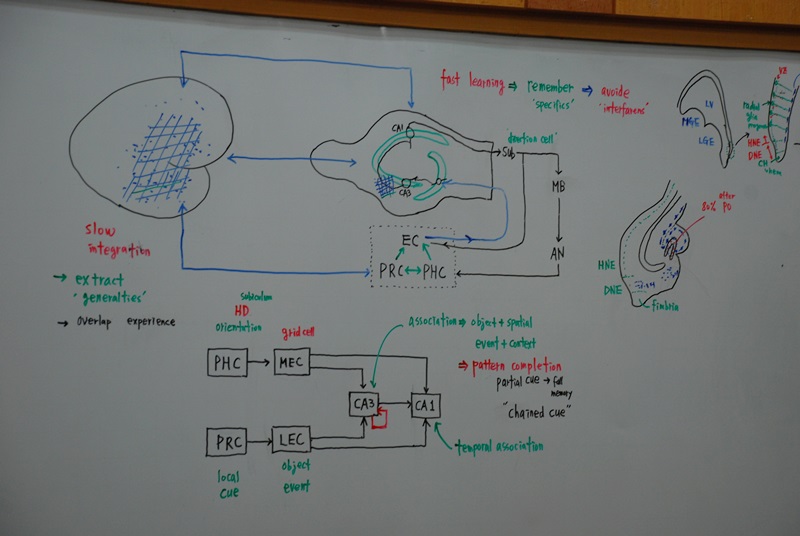 fast learning ⇒ remember ⇒ avoide
'specifics' 'interferens'
CA1
CA3
Sub
MB
AN
EC
PRC ↔ PHC
slow
integration
→ extract
'generalties'
→ overlap experience
subiculum
HD
orientation
grid cell
PHC
MEC
PRC
LEC
CA3
CA1
local
cue
object
event
association ⇒ object + spatial
event + context
⇒ pattern completion
partial cue → full
memory
"chained cue"
temporal association
LV
MGE
LGE
VZ
radial
glia
HNE
DNE
CH
after
80% PO
HNE
DNE
fimbria